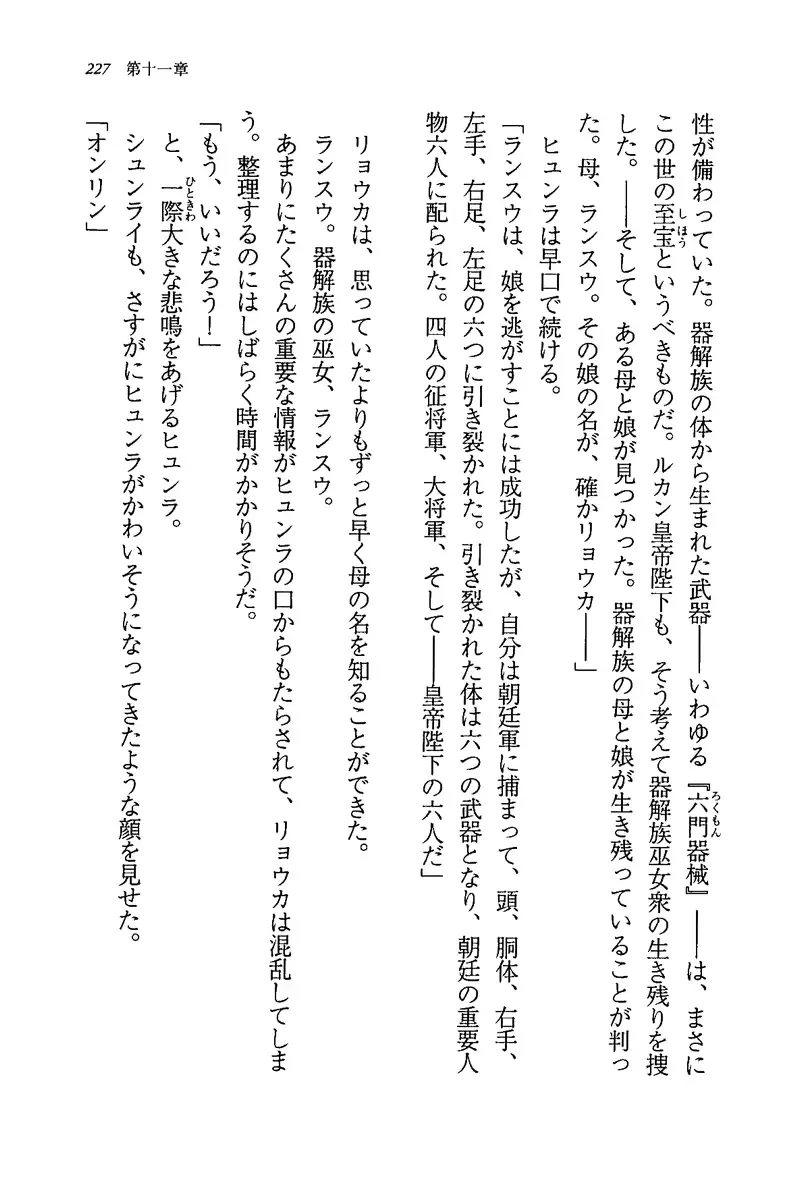 227　第十一章
性が備わっていた。器解族の体から生まれた武器――いわゆる『六門器械』――は、まさに
この世の至宝というべきものだ。ルカン皇帝陛下も、そう考えて器解族巫女衆の生き残りを捜
した。――そして、ある母と娘が見つかった。器解族の母と娘が生き残っていることが判っ
た。母、ランスウ。その娘の名が、確かリョウカ――」
ヒュンラは早口で続ける。
「ランスウは、娘を逃がすことには成功したが、自分は朝廷軍に捕まって、頭、胴体、右手、
左手、右足、左足の六つに引き裂かれた。引き裂かれた体は六つの武器となり、朝廷の重要人
物六人に配られた。四人の征将軍、大将軍、そして――皇帝陛下の六人だ」
リョウカは、思っていたよりもずっと早く母の名を知ることができた。
ランスウ。器解族の巫女、ランスウ。
あまりにたくさんの重要な情報がヒュンラの口からもたらされて、リョウカは混乱してしま
う。整理するのにはしばらく時間がかかりそうだ。
「もう、いいだろう！」
と、一際大きな悲鳴をあげるヒュンラ。
シュンライも、さすがにヒュンラがかわいそうになってきたような顔を見せた。
「オンリン」